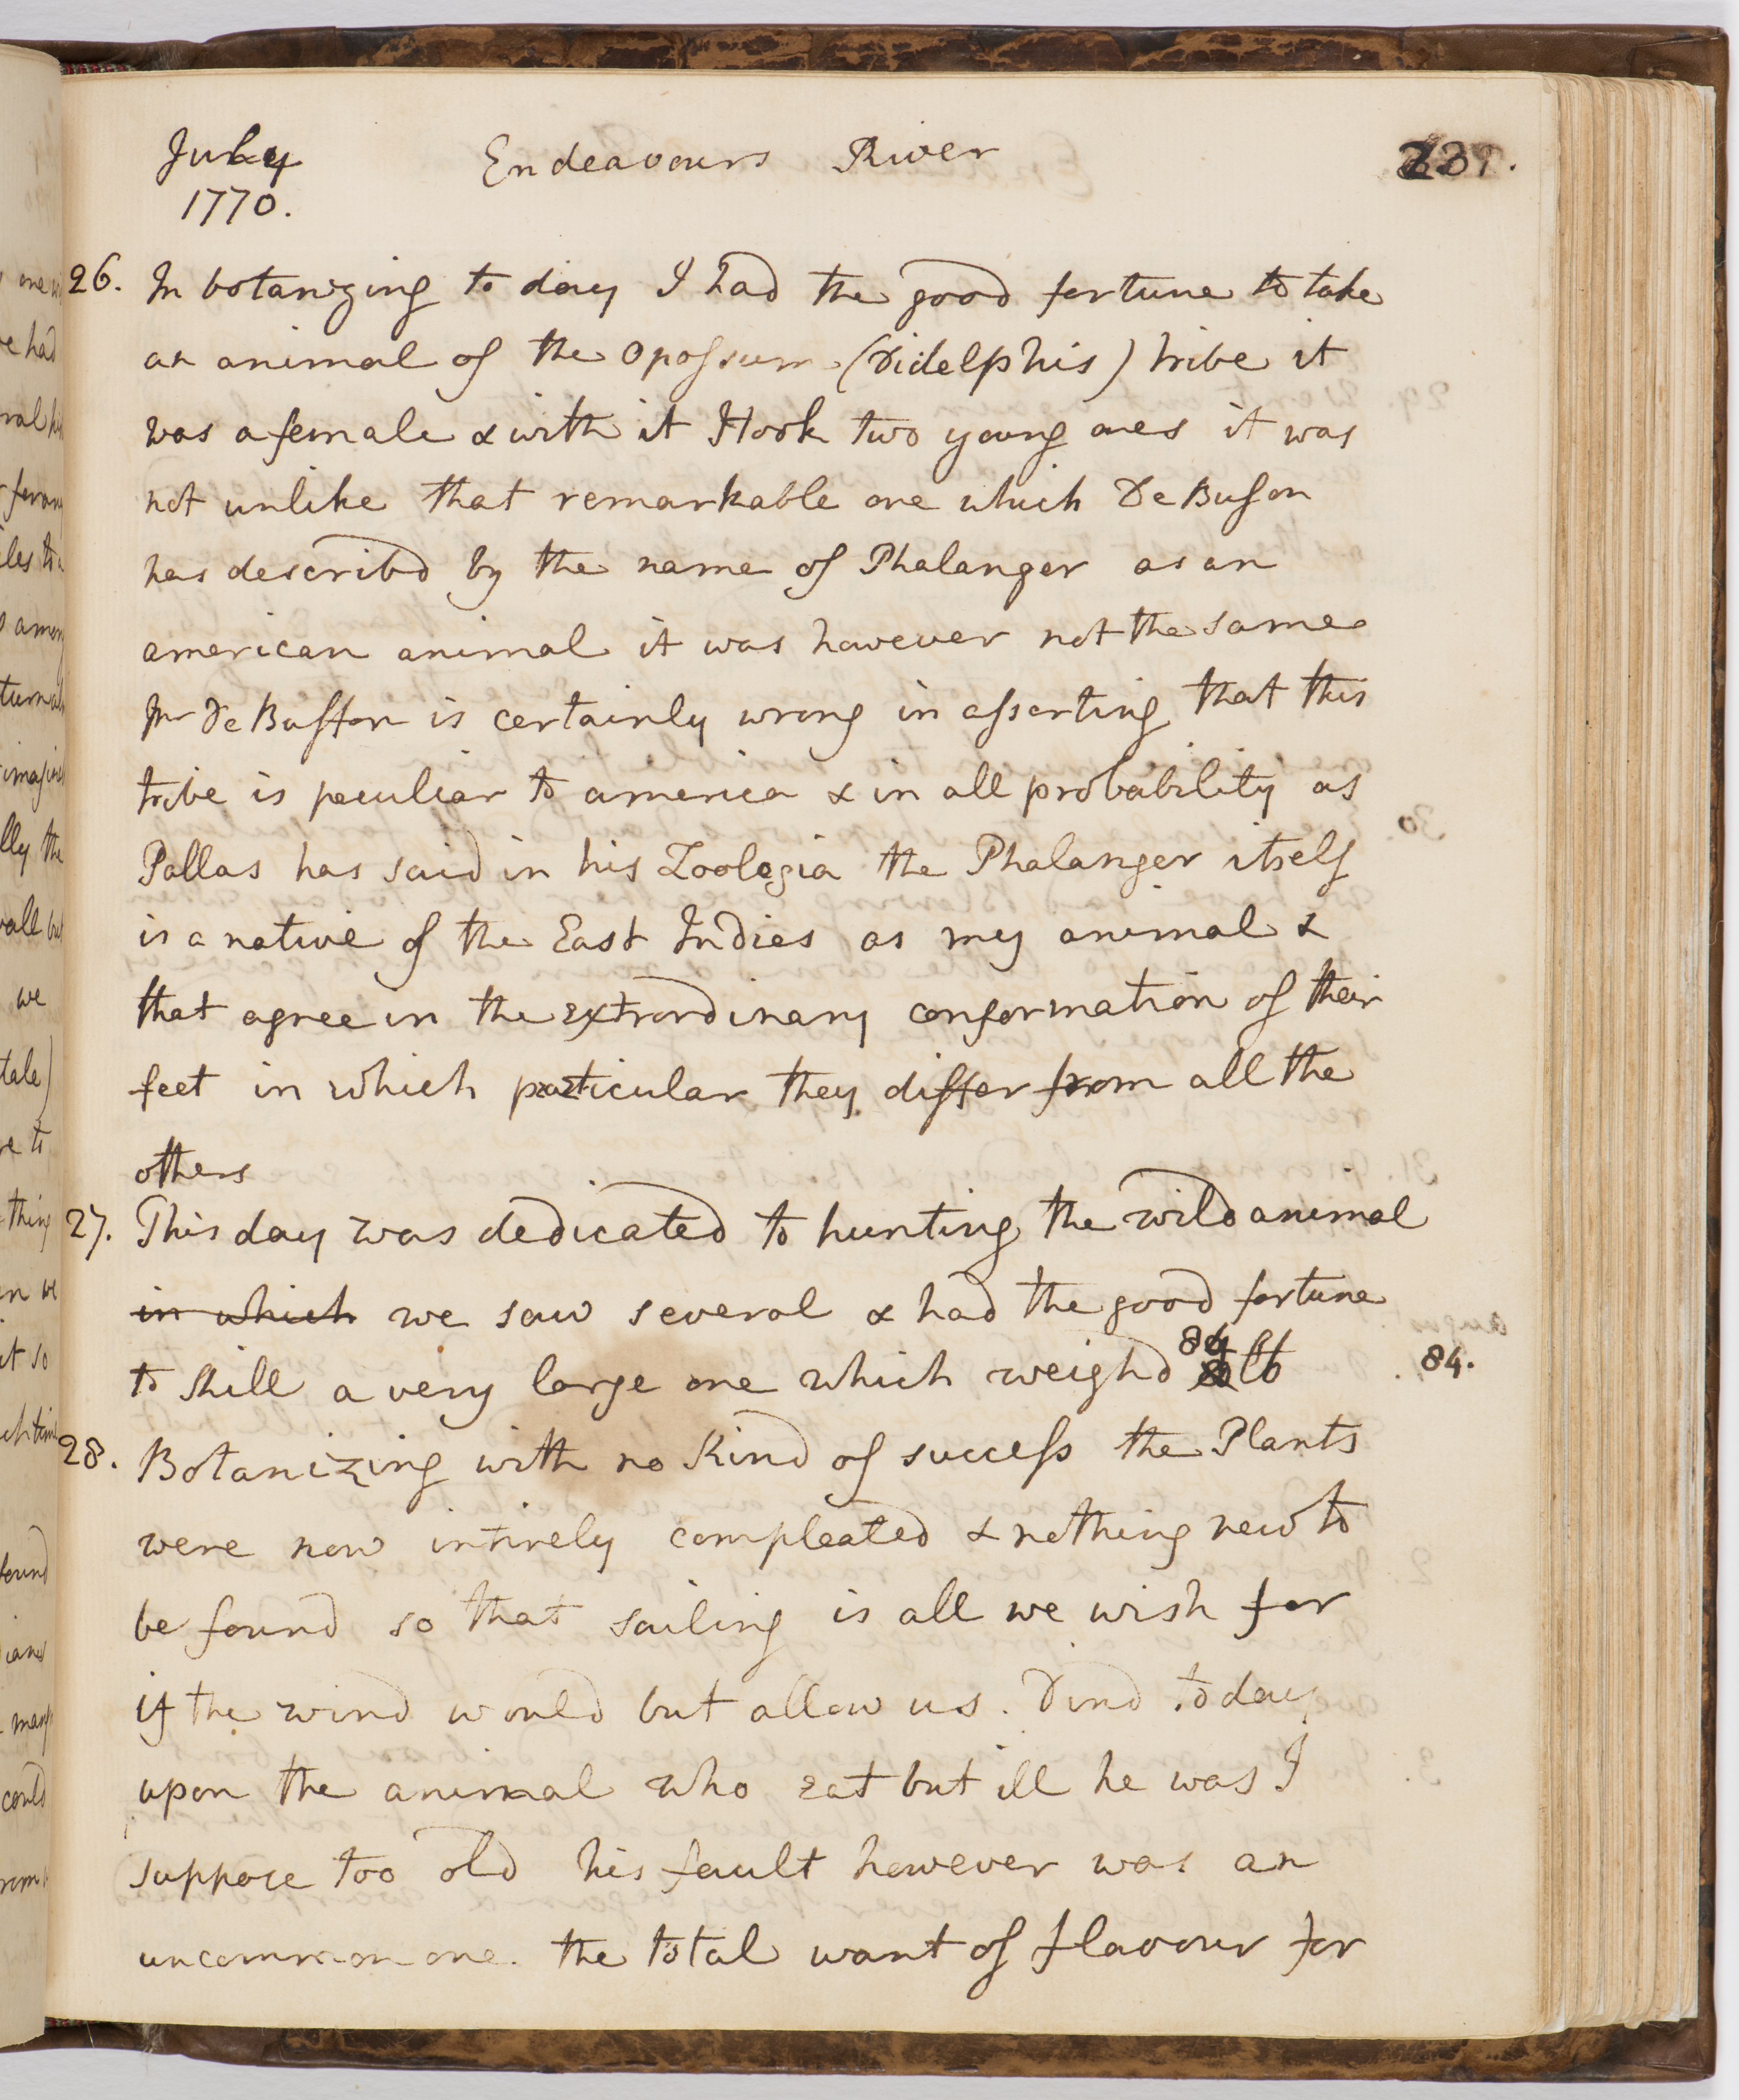 July Endeavours River
1770.
26. In botanizing to day I had the good fortune to take
an animal of the Opossum (Didelphis) tribe it
was a female & with it I took two young ones it was
not unlike that remarkable one which De Bufon
has describd by the name of Phalanger as an
american animal it was however not the same
Mr De Buffon is certainly wrong in asserting that this
tribe is peculiar to america & in all probability as
Pallas has said in his Zoologia the Phalanger itself
is a native of the East Indies as my animal &
that agree in the extrordinary conformation of their
feet in which particular they differ from all the
others
27. This day was dedicated to hunting the wild animal
in which we saw several & had the good fortune
to kill a very large one which weighd 84 lb
84.
28. Botanizing with no kind of success the Plants
were now intirely compleated & nothing new to
be found so that sailing is all we wish for
if the wind would but allow us. Dind to day
upon the animal who eat but ill he was I
suppose too old his fault however was an
uncommon one. the total want of flavour for